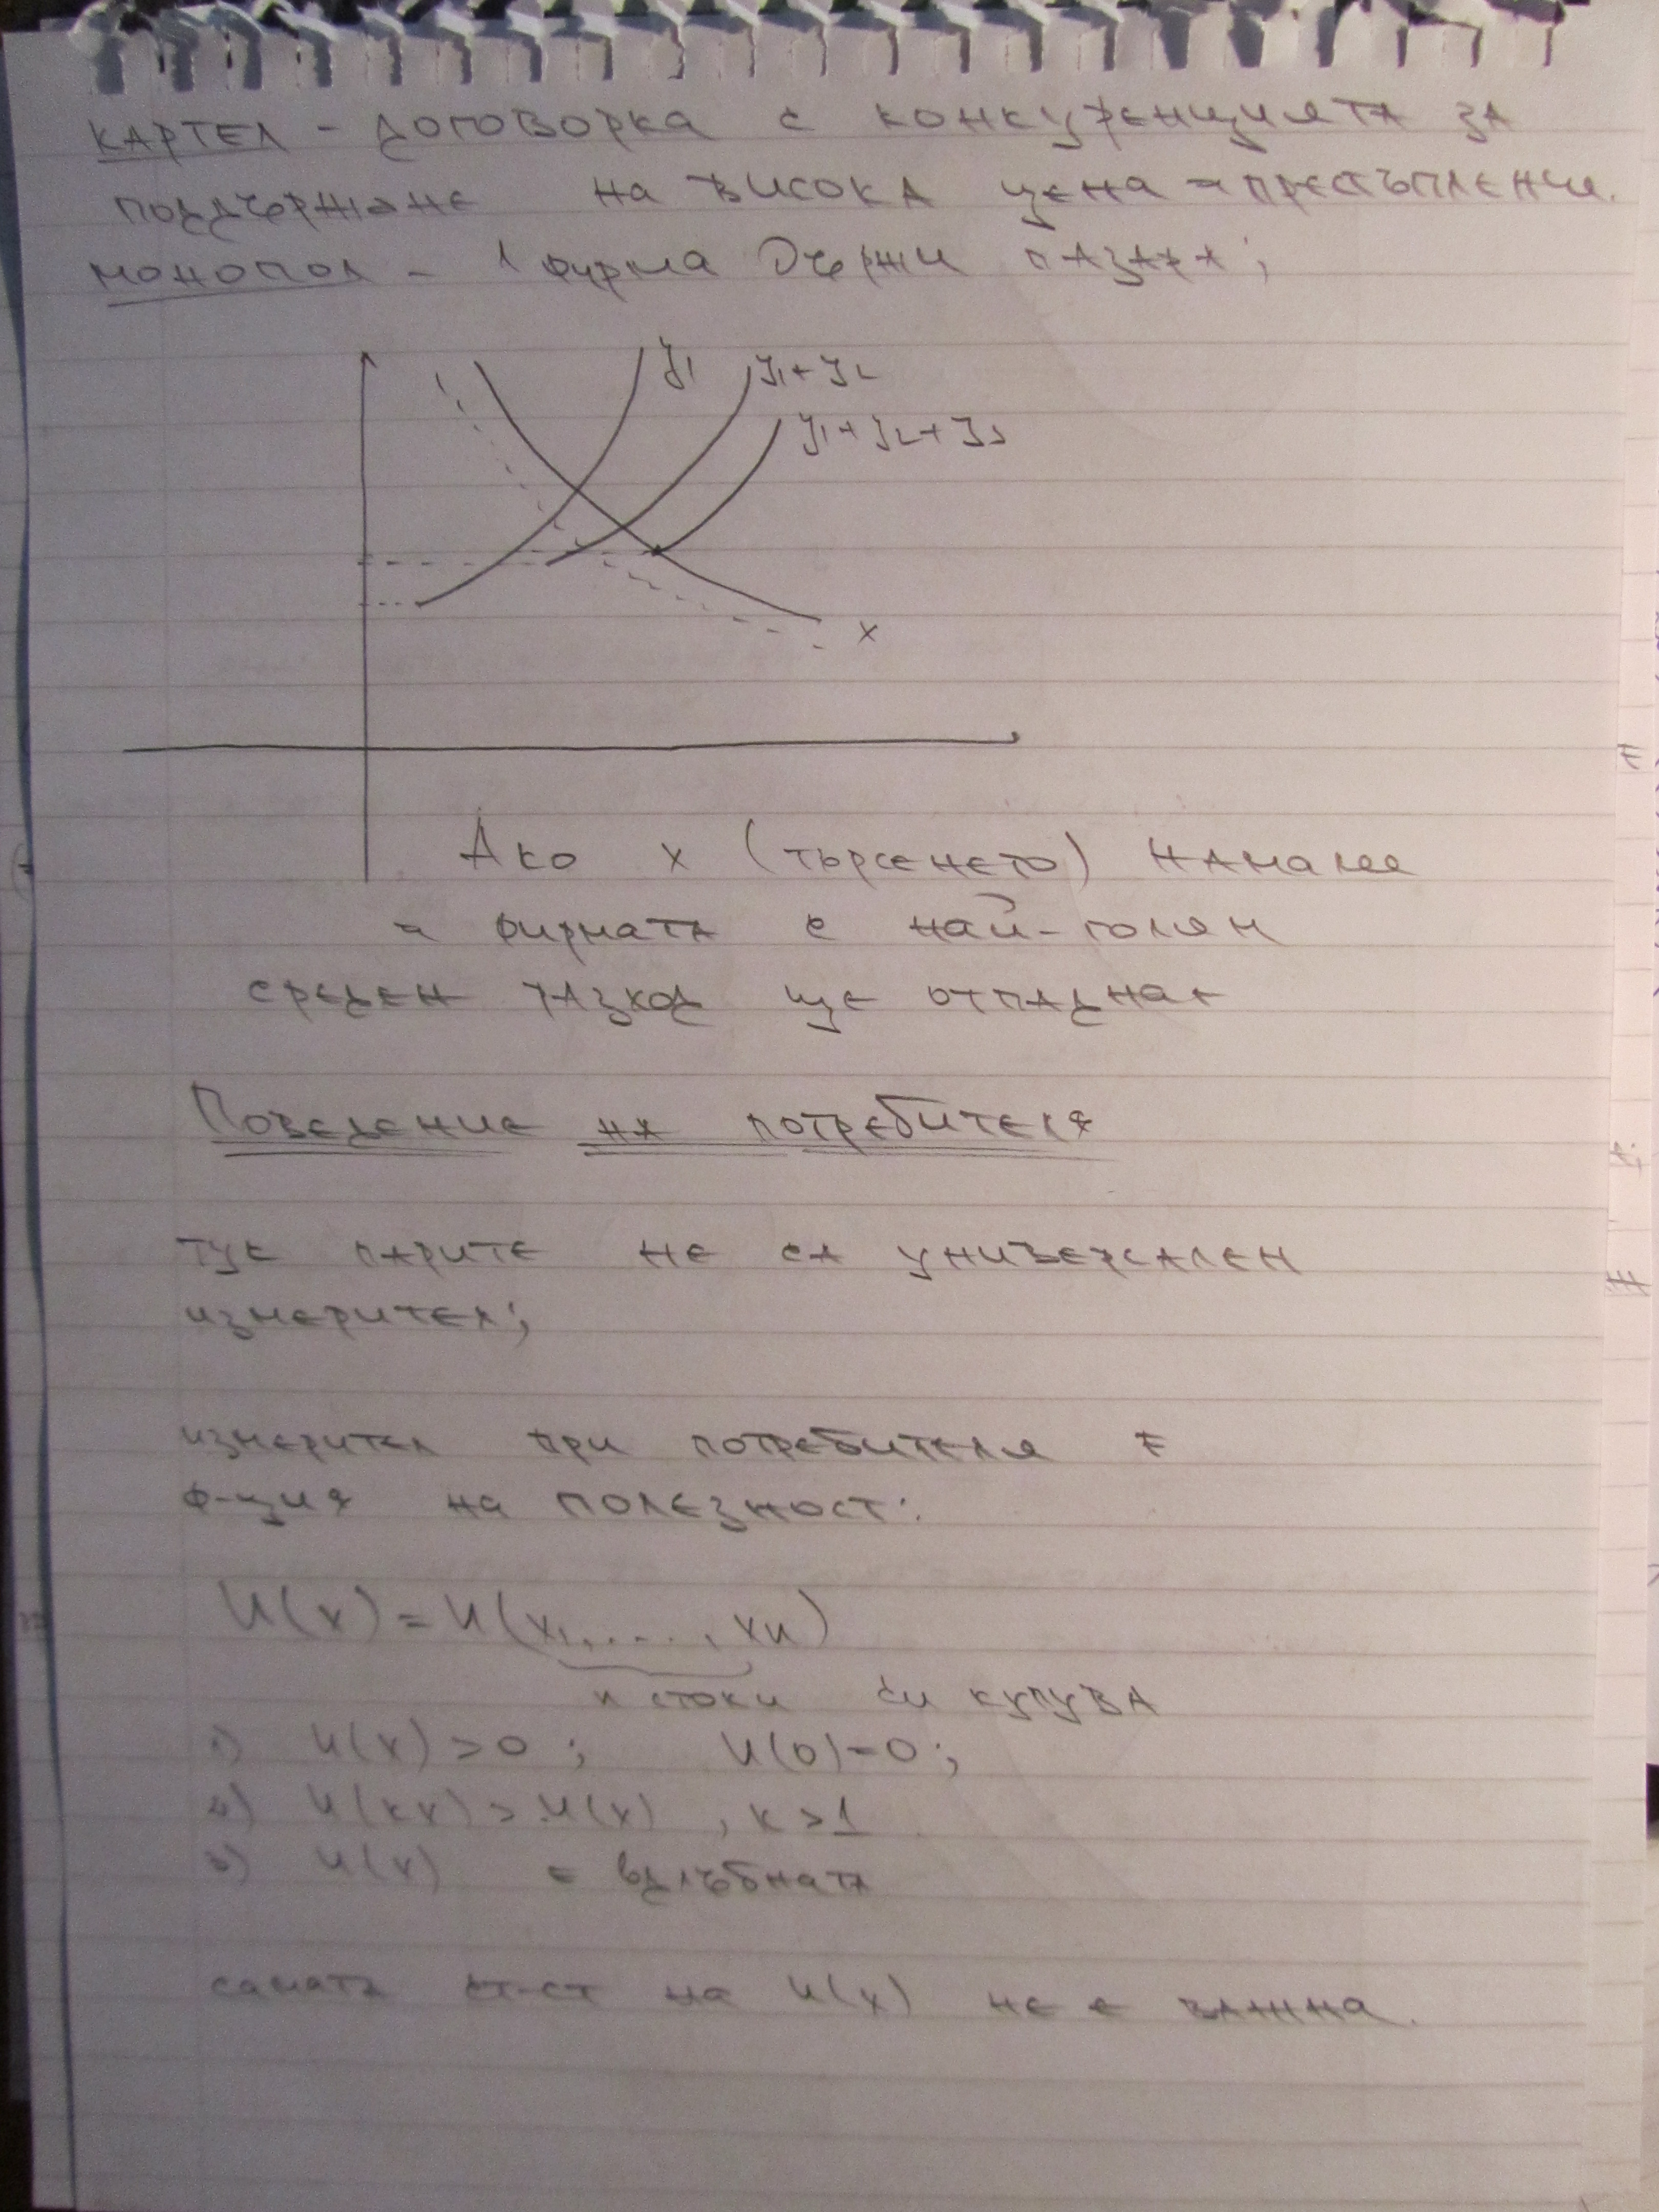 КАРТЕЛ - договорка с конкуренцията за
поддържане на висока цена ⇒ престъплени.
монопол - 1 фирма държи пазара;
y1
y1+y2
y1+y2+y3
x
Ако x (търсенето) намалее
⇒ фирмата с най-голям
среден разход ще отпадне
Поведение на потребителя
тук парите не са универсален
измерител;
измерител при потребителя е
ф-ция на полезност:
U(x) = U(x1, ...., xn)
n стоки си купува
1) U(x) > 0 ; U(0) = 0 ;
2) U(kx) > U(x) , k > 1
3) U(x) е вдлъбната
самата ст-ст на U(x) не е важна.